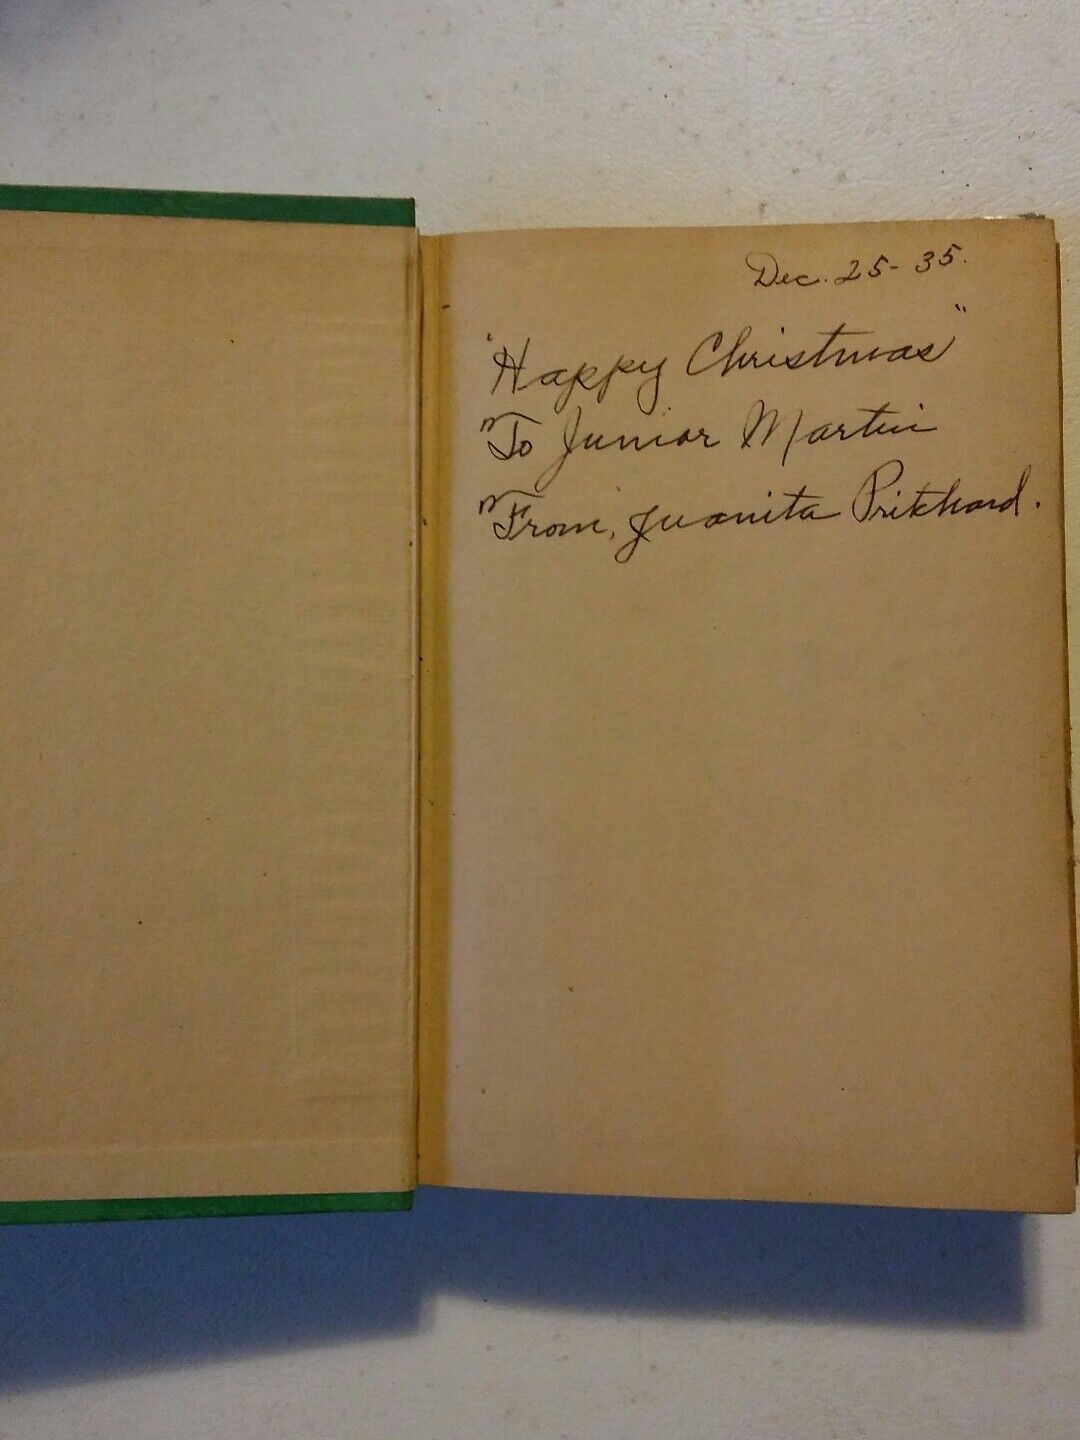 Dec. 25 - 35.
"Happy Christmas"
"To Junior Martin
"From, Juanita Pritchard.